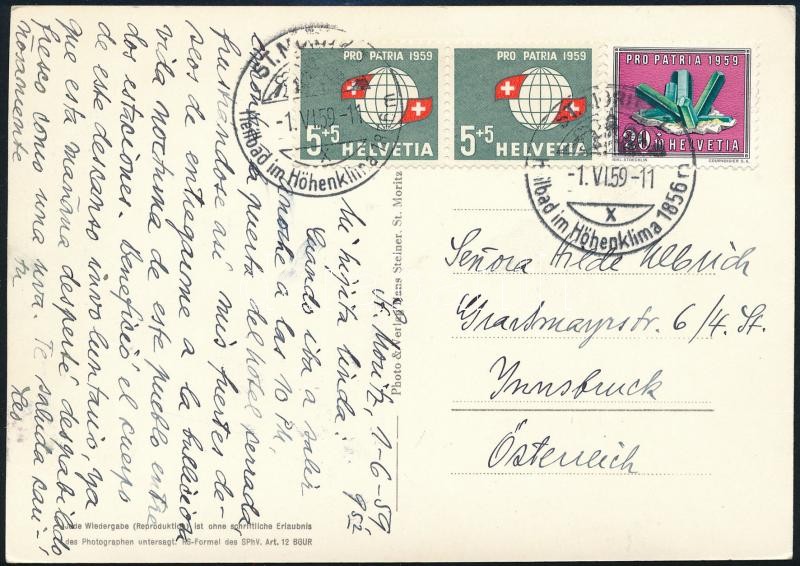 PRO PATRIA 1959
5+5
HELVETIA
PRO PATRIA 1959
5+5
HELVETIA
PRO PATRIA 1959
20+10
HELVETIA
COURVOISIER S.A.
ST. MORITZ
-1.VI.59-11
Heilbad im Höhenklima 1856 m
-1.VI.59-11
Heilbad im Höhenklima 1856 m
St. Moritz, 1-6-59
Mi hijita linda:
Cuando iba a salir
anoche a las 10 PM,
encontré la puerta del hotel cerrada
frustrandose así mis fuertes de-
seos de entregarme a la bulliciosa
vida nocturna de este pueblo entre
dos estaciones. Beneficio el cuerpo
de este descanso involuntario, ya
que esta mañana desperté despabilado
fresco como una rosa. Te saluda cari-
ñosamente
tu
Leo
Photo & Verlag Hans Steiner, St. Moritz
Señora Hilde Ulbrich
Grassmayrstr. 6/4. St.
Innsbruck
Österreich
Jede Wiedergabe (Reproduktion) ist ohne schriftliche Erlaubnis
des Photographen untersagt. RS-Formel des SPhV. Art. 12 BGUR